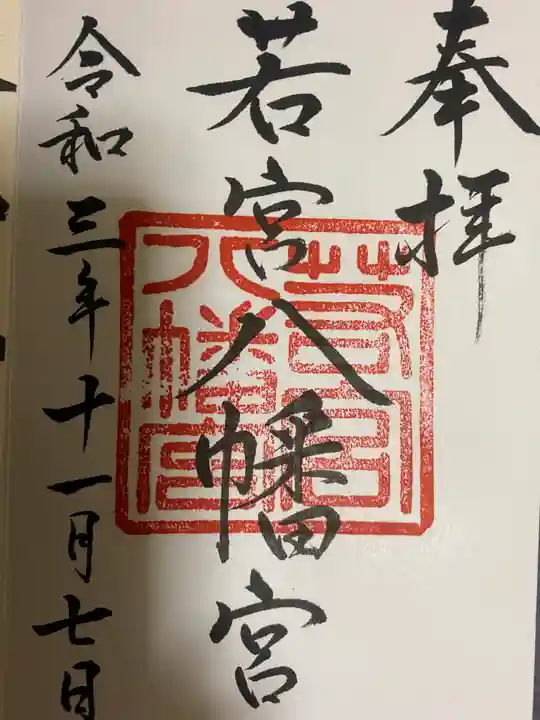 奉拝
若宮八幡宮
若宮八幡宮
令和三年十一月七日